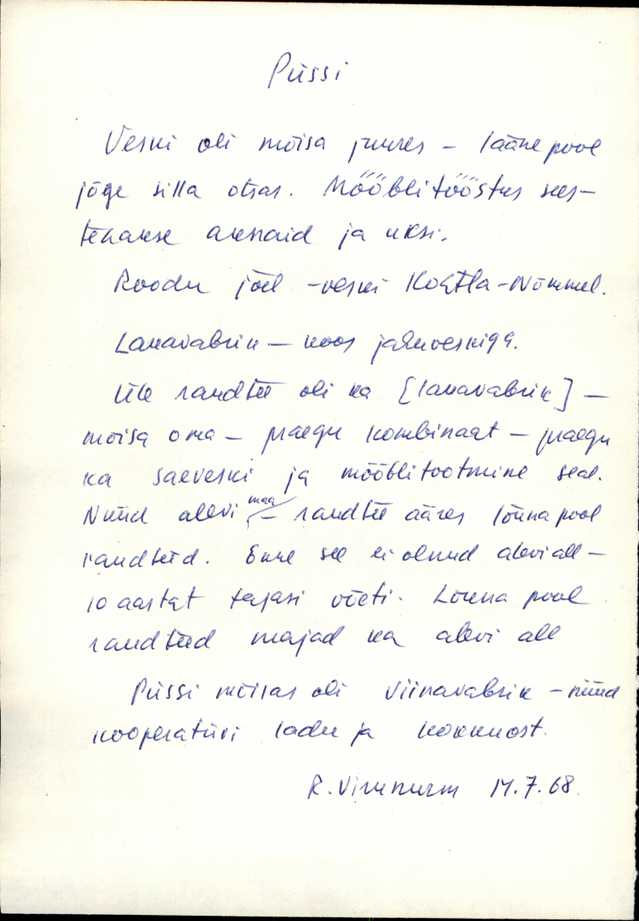 Püssi
Veski oli mõisa juures – lääne pool
jõge silla otsas. Mööblitööstus sees –
tehakse aknaid ja uksi.
Roodu jõel – veski Kohtla-Nõmmel.
Lauavabrik – koos jahuveskiga.
Üle raudtee oli ka [lauavabrik] –
mõisa oma – praegu kombinaat – praegu
ka saeveski ja mööblitootmine seal.
Nüüd alevi maa – raudtee ääres lõuna pool
raudteed. Enne see ei olnud alevi all –
10 aastat tagasi võeti. Lõuna pool
raudteed majad ka alevi all
Püssi mõisas oli viinavabrik – nüüd
kooperatiivi ladu ja kokkuost.
R. Virunurm 17.7.68.